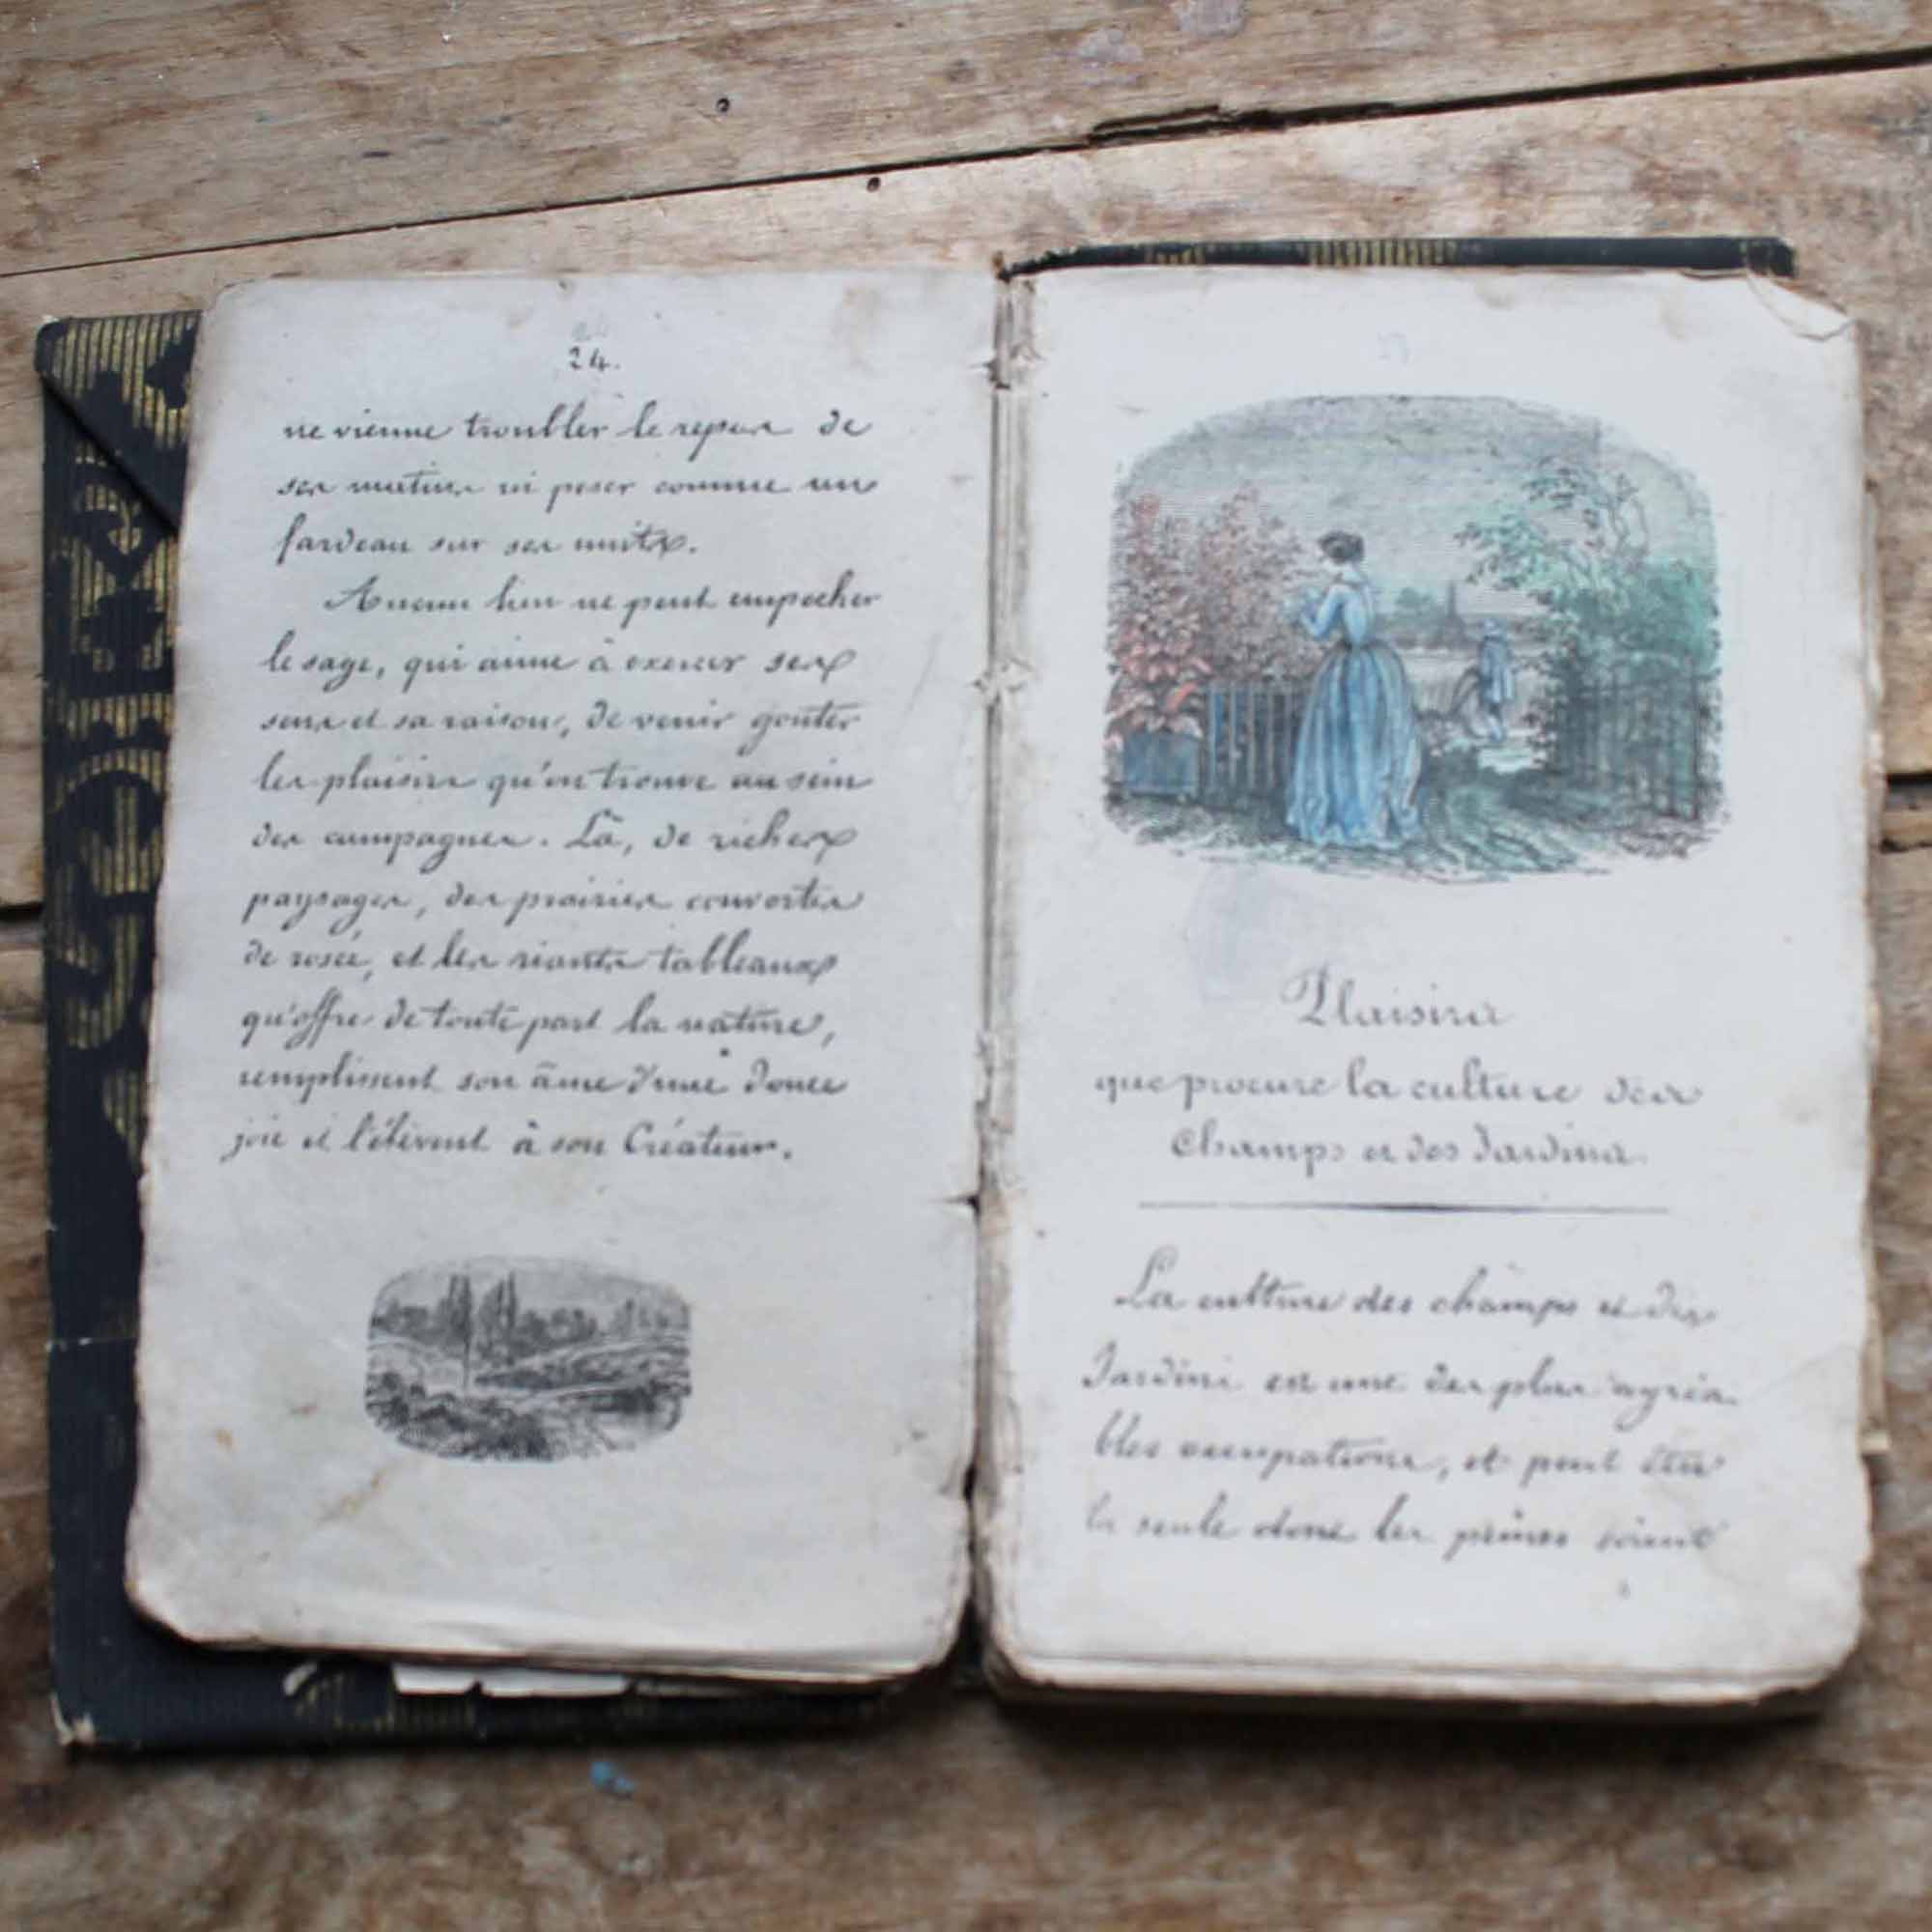 24.
ne vienne troubler le repos de
ses matins ni peser comme un
fardeau sur ses nuits.
Aucun lien ne peut empecher
le sage, qui aime à exercer ses
sens et sa raison, de venir gouter
les plaisirs qu'on trouve au sein
des campagnes. Là, de riches
paysages, des prairies couvertes
de rosée, et les riants tableaux
qu'offre de toute part la nature,
remplissent son âme d'une douce
joie et l'élèvent à son Créateur.
Plaisirs
que procure la culture des
Champs et des Jardins.
La culture des champs et des
Jardins est une des plus agréa-
bles occupations, et peut être
la seule dont les peines soient